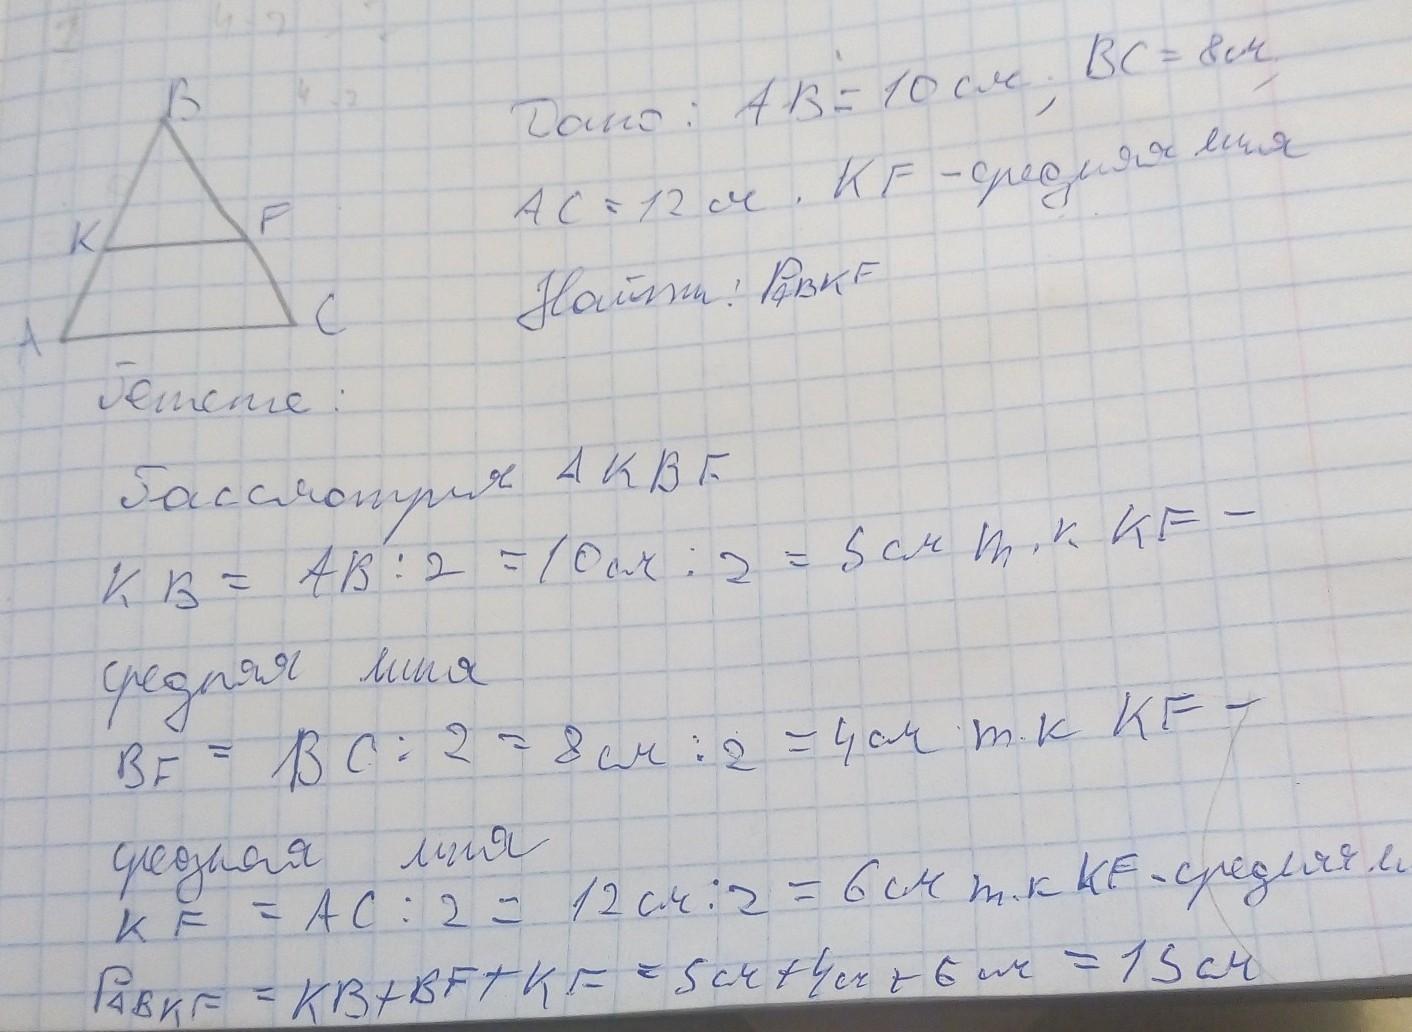 B
K
F
A
C
Дано: AB = 10 см, BC = 8см,
AC = 12 см. KF - средняя линия
Найти: P△BKF
Решение:
Рассмотрим △KBF
KB = AB : 2 = 10см : 2 = 5см т.к KF -
средняя линия
BF = BC : 2 = 8см : 2 = 4см т.к KF -
средняя линия
KF = AC : 2 = 12см : 2 = 6см т.к KF - средняя л
P△BKF = KB + BF + KF = 5см + 4см + 6см = 15см